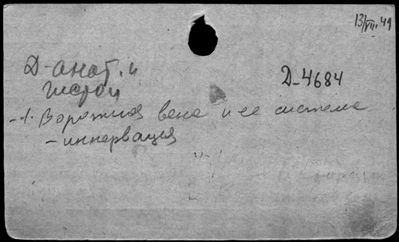 13/VIII.49
Д-анат. и
гистол
Д-4684
-1. Воротная вена и ее система
- иннервация